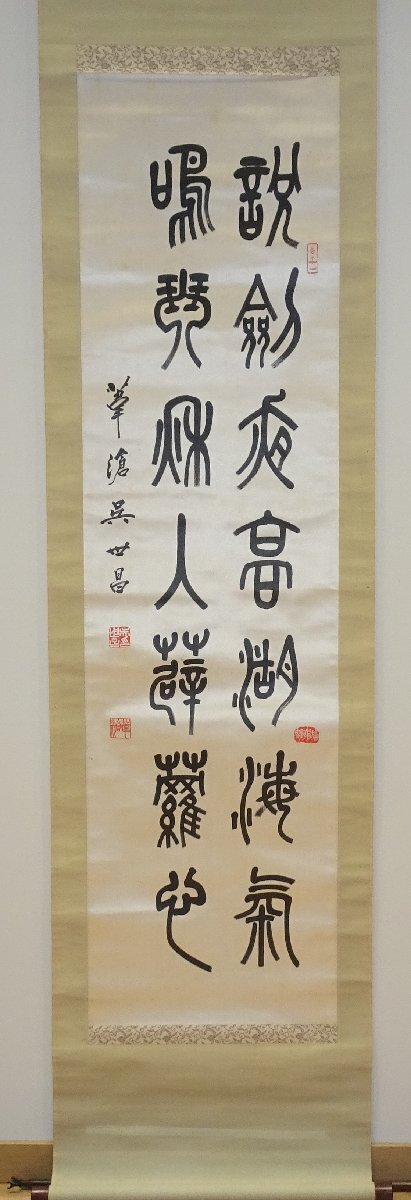 說劍夜高湖海氣
鳴琴秋人薜蘿心
華滄吳世昌